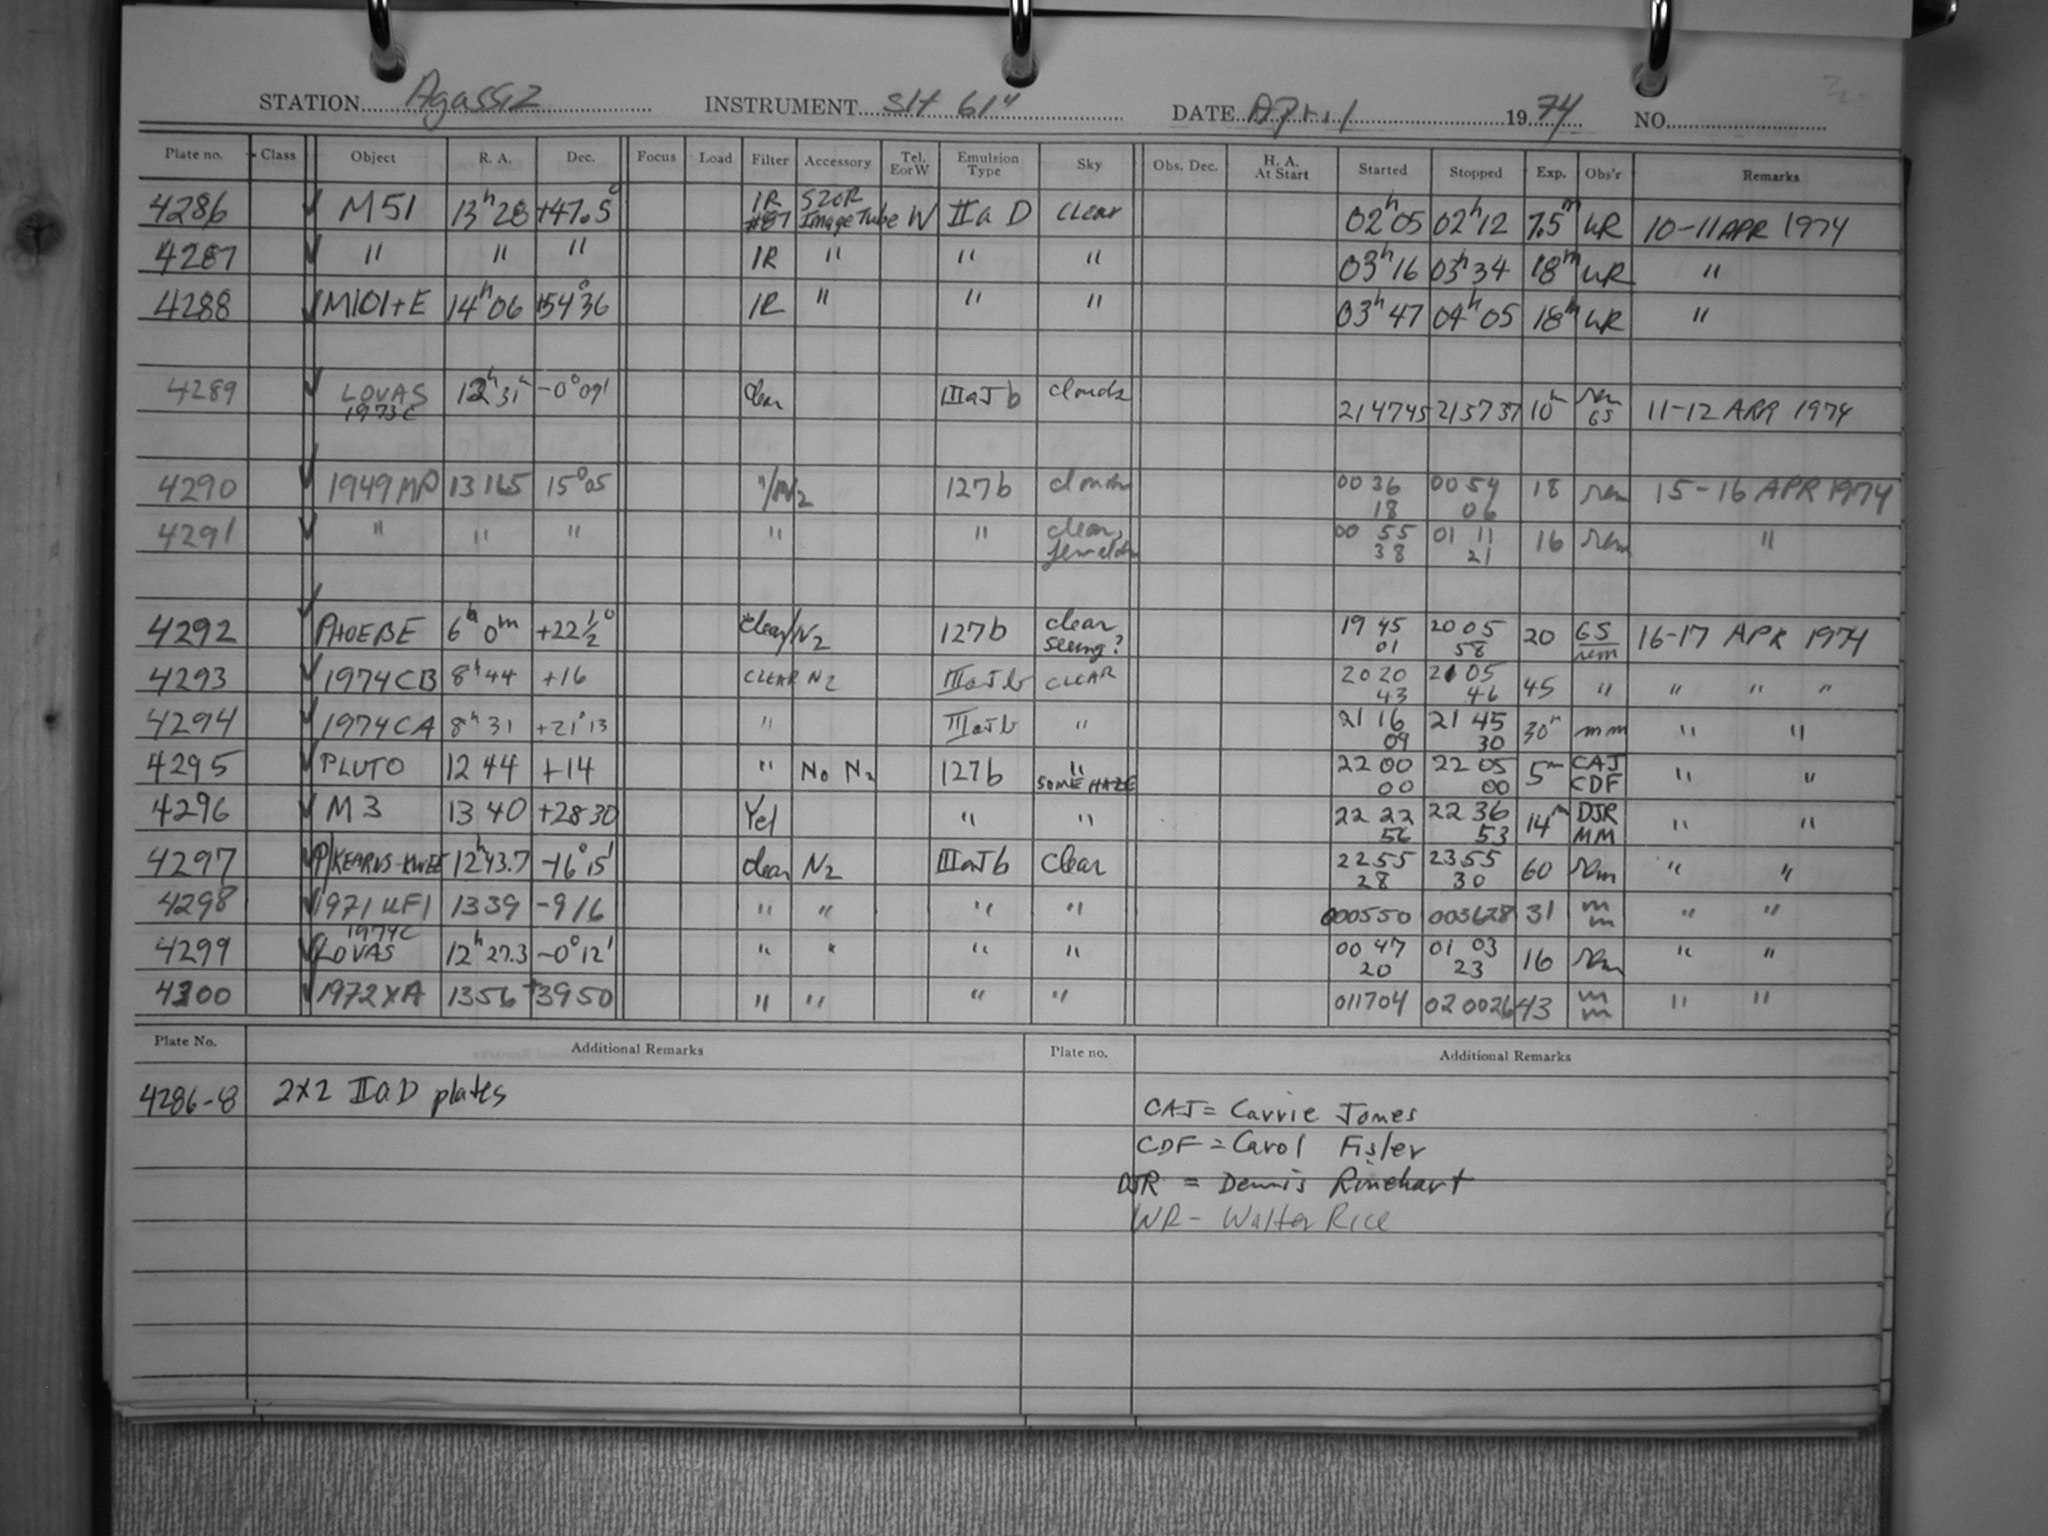 STATION Agassiz INSTRUMENT SH 61" DATE April 1974 NO.
Plate no. Class Object R. A. Dec. Focus Load Filter Accessory Tel. E or W Emulsion Type Sky Obs. Dec. H. A. At Start Started Stopped Exp. Obs'r Remarks
4286 M 51 13h 28 +47.5° IR #87 S20R Image Tube W IIa D clear 02h 05 02h 12 7.5m WR 10-11 APR 1974
4287 " " " IR " " " 03h 16 03h 34 18m WR "
4288 M101+E 14h 06 +54°36 IR " " " 03h 47 04h 05 18m WR "
4289 LOVAS 1973c 12h 31 -0°09' clear IIIaJ b clouds 21 47 45 21 57 57 10m rem GS 11-12 APR 1974
4290 1949 MP 13 16.5 15°05 "/N2 127b clouds 00 36 18 00 54 06 18 rem 15-16 APR 1974
4291 " " " " " clear, 00 55 38 01 11 21 16 rem "
4292 PHOEBE 6h 0m +22 1/2° clear/N2 127b clear seeing? 19 45 01 20 05 58 20 GS rem 16-17 APR 1974
4293 1974 CB 8h 44 +16 CLEAR N2 IIIaJ b CLEAR 20 20 43 21 05 46 45 " " " "
4294 1974 CA 8h 31 +21°13 " IIIaJb " 21 16 09 21 45 30 30m mm " "
4295 PLUTO 12 44 +14 " No N2 127b " SOME HAZE 22 00 00 22 05 00 5m CAJ CDF " "
4296 M 3 13 40 +28 30 Yel " " 22 22 56 22 36 53 14m DJR MM " "
4297 P/KEARNS-KWEE 12h43.7 -16°15' clear N2 IIIaJb clear 22 55 28 23 55 30 60 rem " "
4298 1971 UF1 13 39 -9 16 " " " " 00 05 50 00 36 28 31 mm " "
4299 1974c LOVAS 12h 27.3 -0°12' " " " " 00 47 20 01 03 23 16 rem " "
4300 1972 XA 13 56 +39 50 " " " " 01 17 04 02 00 26 43 mm " "
Plate No. Additional Remarks Plate no. Additional Remarks
4286-8 2x2 IIaD plates
CAJ = Carrie Jones
CDF = Carol Fisler
DJR = Dennis Rinehart
WR - Walter Rice